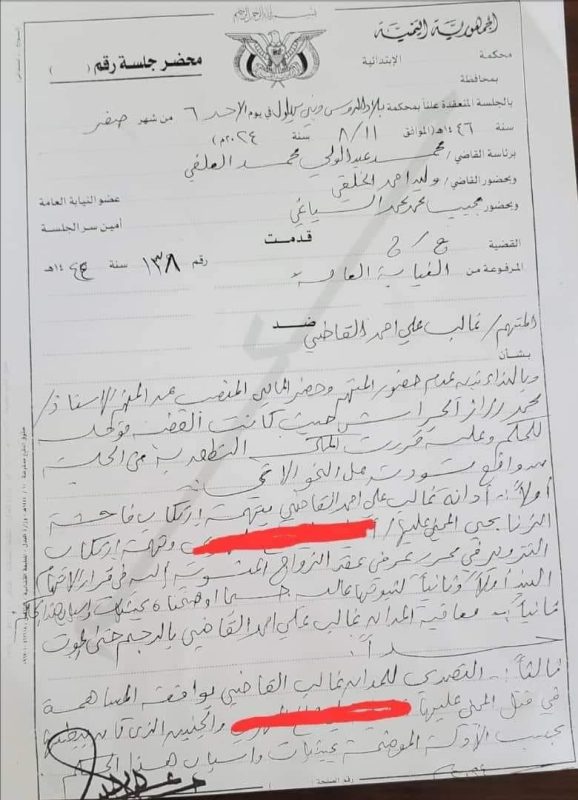 بسم الله الرحمن الرحيم
الجمهورية اليمنية
محضر جلسة رقم ( )
محكمة الإبتدائية
بمحافظة
بالجلسة المنعقدة علناً بمحكمة بلاد الروس وبني بهلول في يوم الاحد ٦ من شهر صفر
سنة ١٤٤٦هـ (الموافق ٨/١١ سنة ٢٠٢٤م)
برئاسة القاضي/ محمد عبدالولي محمد العلفي
وبحضور القاضي/ وليد احمد الخلقي عضو النيابة العامة
وبحضور مجيب محمد محمد السياغي أمين سر الجلسة
قدمت
القضية ج/ج رقم ١٣٨ سنة ١٤٤٥هـ
المرفوعة من النيابة العامة
ضد
المتهم/ غالب علي احمد القاضي
بشأن
وبالنداء تبين عدم حضور المتهم وحضر المحامي المنصب عن المتهم الاستاذ/
محمد حيث كانت القضية مؤجلة
للحكم وعليه قررت المحكمة النطق به في الجلسة
من واقع مسودته على النحو الاتي:
أولاً: أدانة غالب علي احمد القاضي بتهمة إرتكاب فاحشة
الزنا بحق المجني عليها/ وتهمة ارتكاب
التزوير في محرر عرفي عقد الزواج المنسوبة إليه في قرار الاتهام
البند أولاً وثانياً لثبوتها عليه حسبما اوضحناه بحيثيات واسباب هذا الحكم
ثانياً: معاقبة المدان غالب علي احمد القاضي بالرجم حتى الموت
حداً
ثالثاً: التصدي للمدان غالب القاضي بواقعة المساهمة
في قتل المجني عليها والجنين الذي كان ببطنها
بحسب الأدلة الموضحة بحيثيات واسباب هذا الحكم
رقم الصفحة